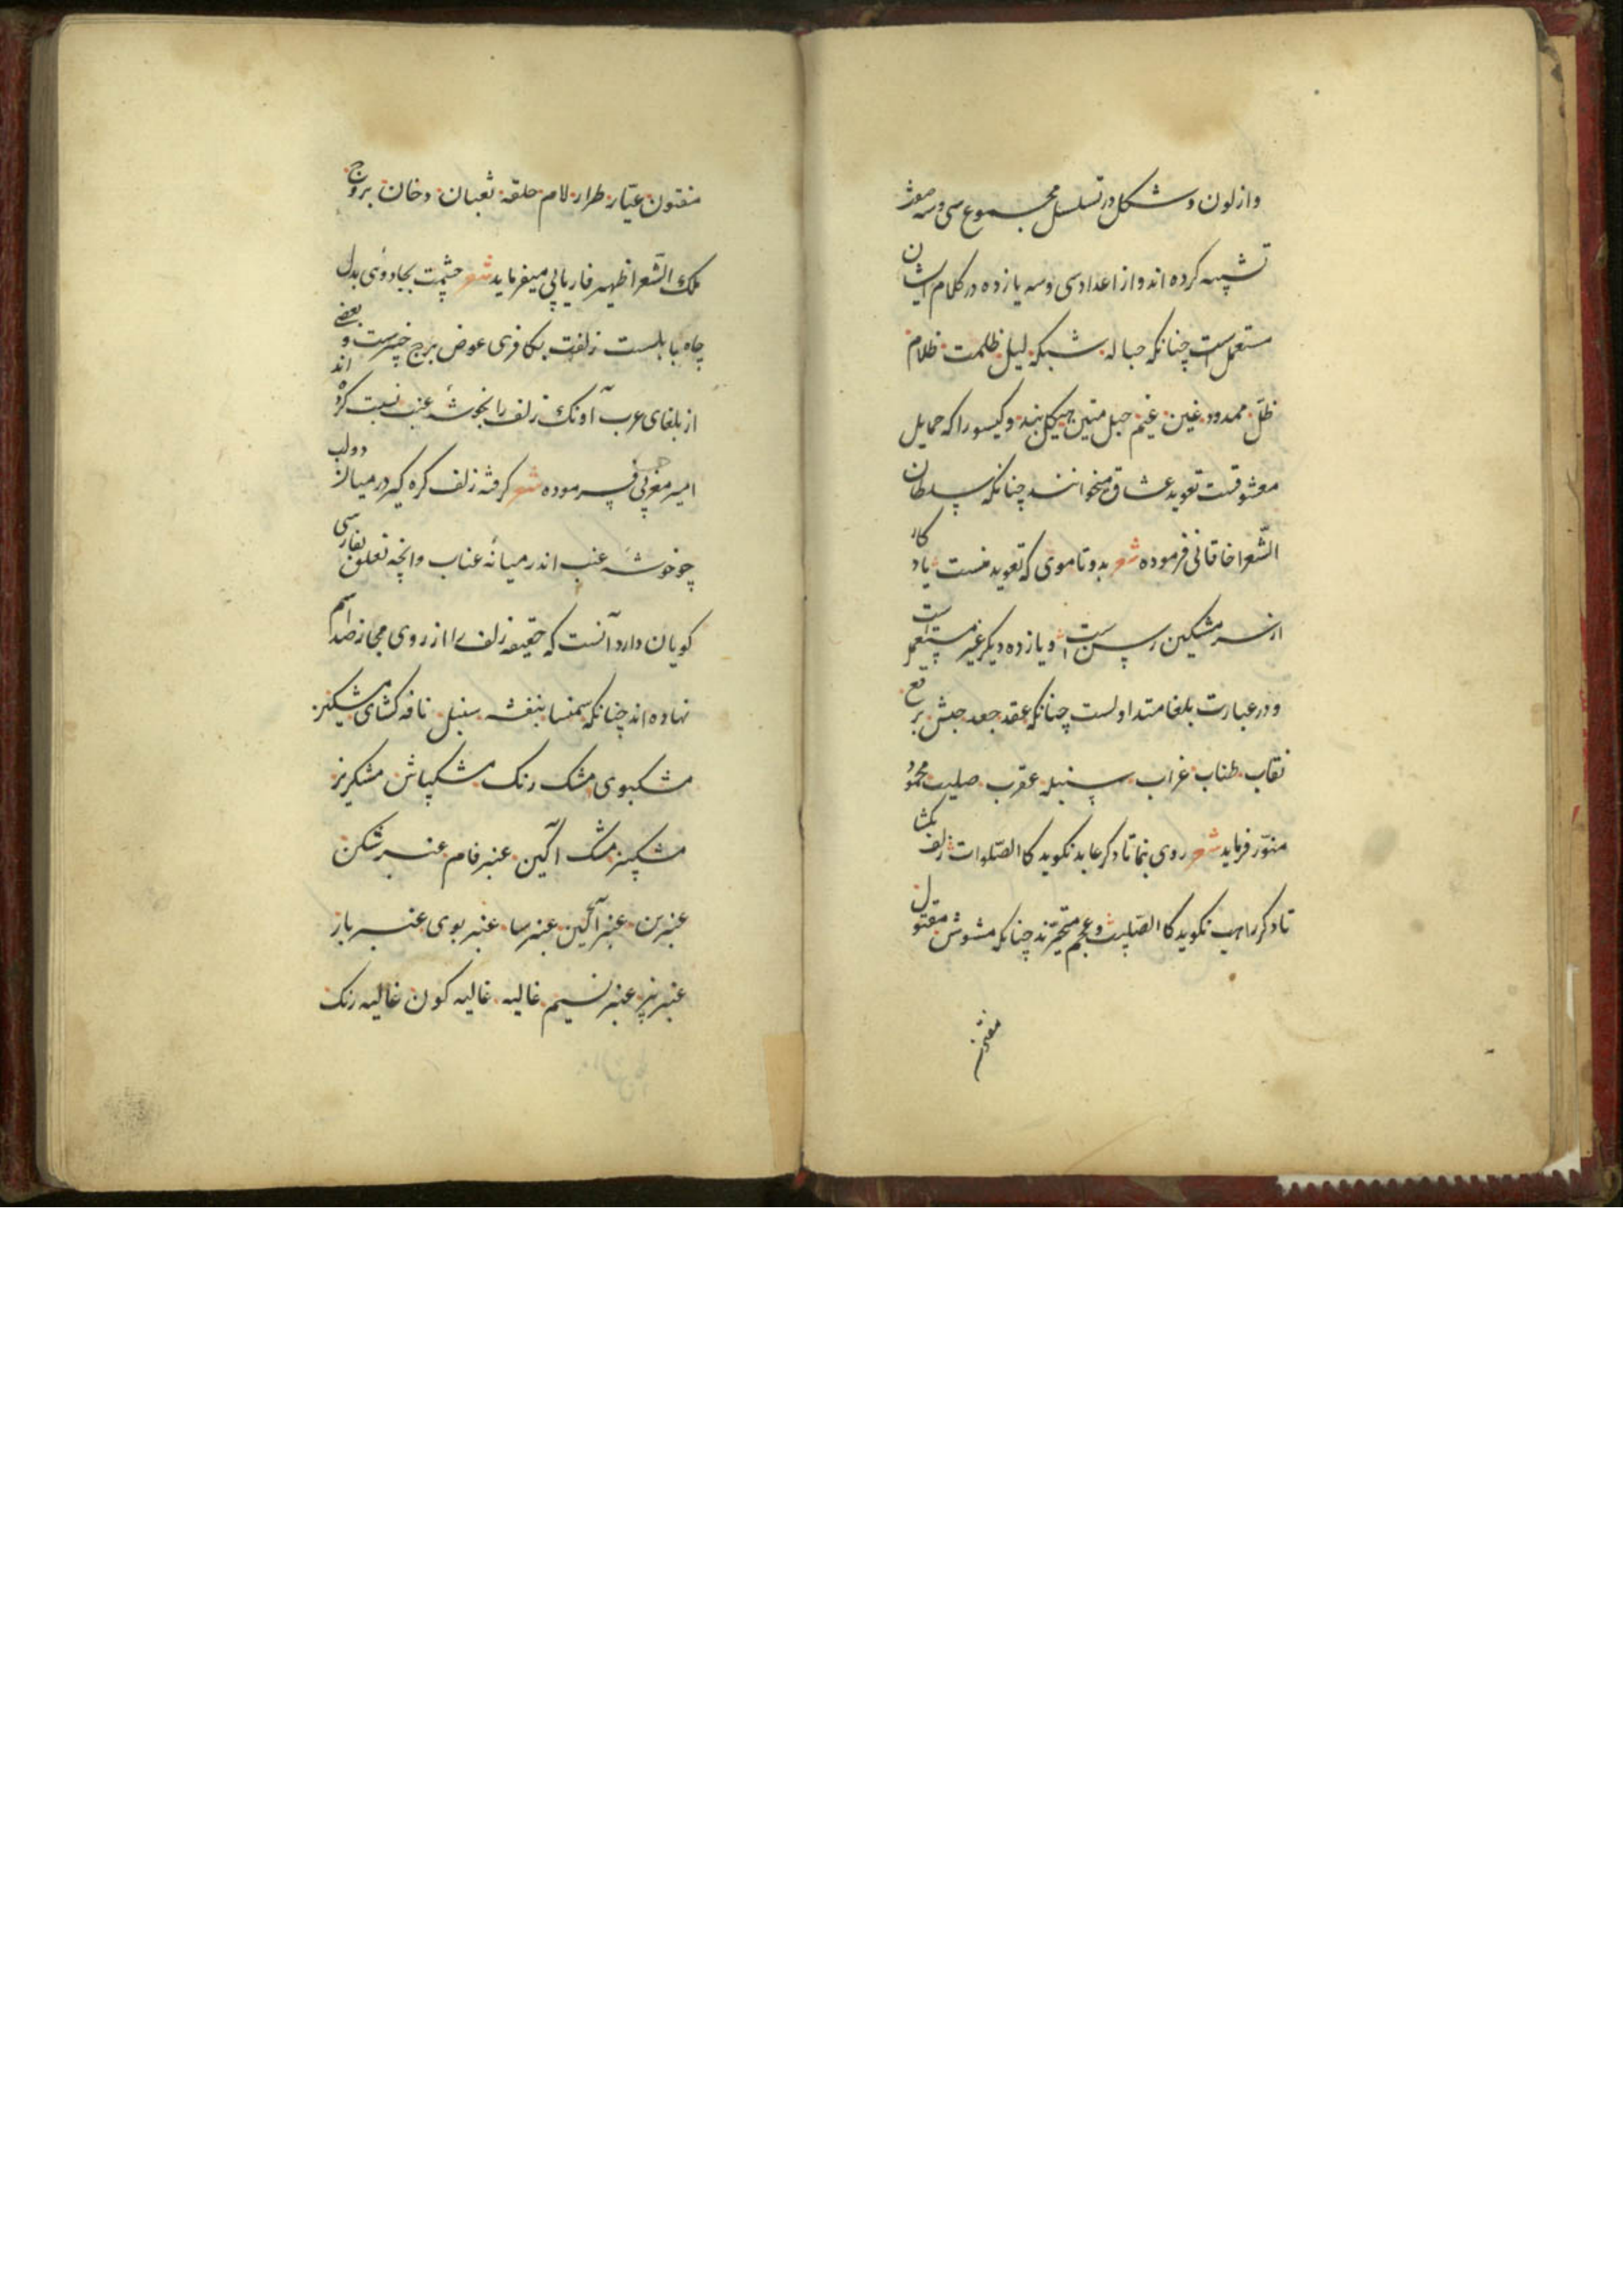 وازلون و شکل در تسلسل مجموع سی و سه
تشبیه کرده اند و از اعداد سی و سه یازده در کلام ایشان
مستعمل است چنانکه حباله شبکه لیل ظلمت ظلام
ظل ممدود غین غیم حبل متین هیکل بند و کیسو را که حمایل
معشوقست تعوید عشاق میخوانند چنانکه سلطان
الشعرا خاقانی فرموده شعر بدو تا موی که تعوید منست یاد کار
از سر مشکین رسن است و یازده دیکر غیر مستعمل است
و در عبارت بلغا متداولست چنانکه عقد جعد حبش برقع
نقاب طناب غراب سنبله عقرب صلیب محمود
منور فرماید شعر روی بنما تا دکر عابد نکوید کا الصلوات زلف بکشا
تا دکر راهب نکوید کا الصلیب و عجم متحیرند چنانکه مشوش مفتول
مفتون
مفتون عیار طرار لام حلقه ثعبان دخان بروج
ملک الشعرا ظهیر فاریابی میفرماید شعر چشمت بجادوئی بدل
چاه بابلست زلفت بکافری عوض برج خیبرست و بعضے
از بلغای عرب آونک زلف را بخوشه عنب نسبت کرده اند
امیر معزی فرموده شعر کرفته زلف کره کیر در میان دو لب
چو خوشه عنب اندر میانه عناب و انچه تعلق بفارسی
کویان دارد آنست که حقیقه زلف را از روی مجاز صد اسم
نهاده اند چنانکه سمنسا بنفشه سنبل نافه کشای مشکین
مشکبوی مشک رنک مشکپاش مشکریز
مشکبیز مشک آکین عنبر فام عنبر شکن
عنبرین عنبر آکین عنبر سا عنبر بوی عنبر بار
عنبر بیز عنبر نسیم غالیه غالیه کون غالیه رنک